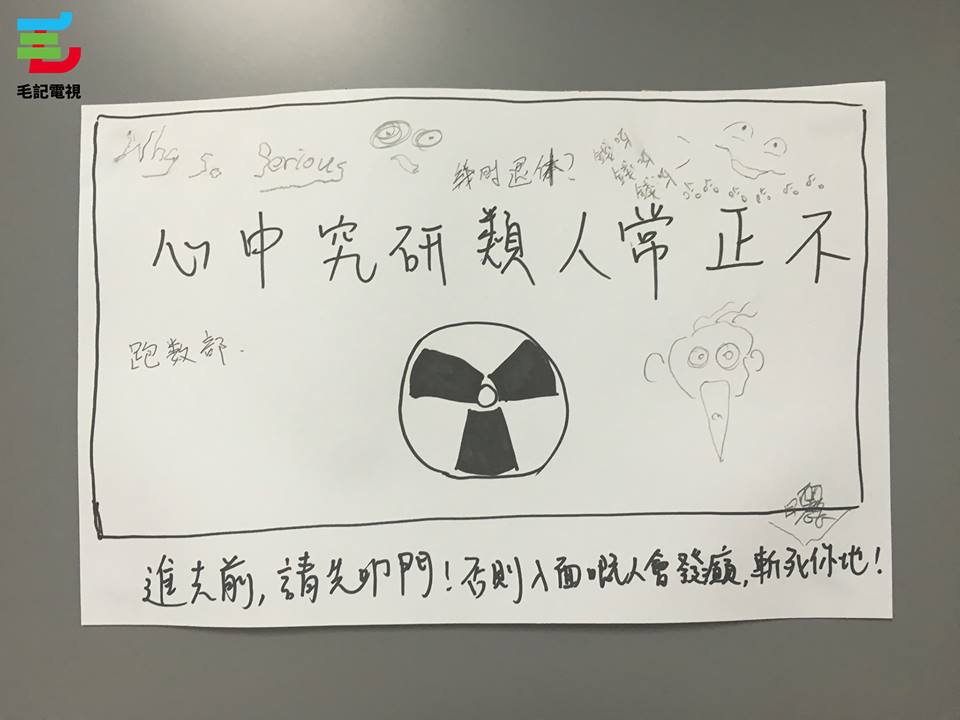 毛記電視
Why So Serious
幾时退休?
錢呀
錢呀
錢呀
不正常人類研究中心
跑数部.
進去前,請先叩門!否則入面嘅人會發癲,斬死你地!